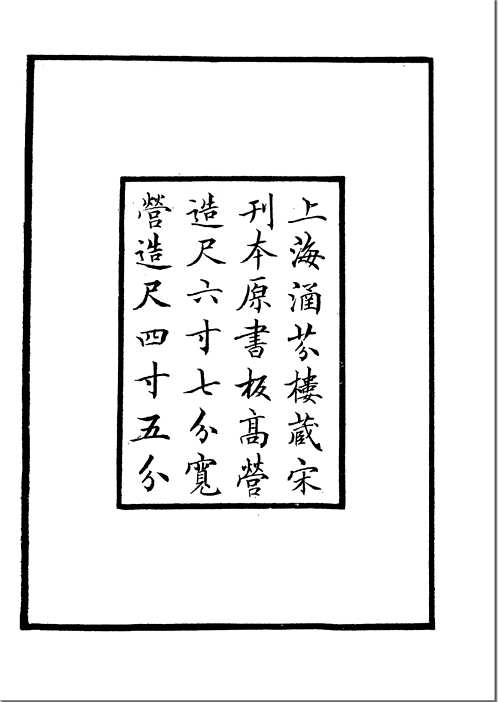 上海涵芬樓蔵宋
刊本原書板髙營
造尺六寸七分寬
營造尺四寸五分